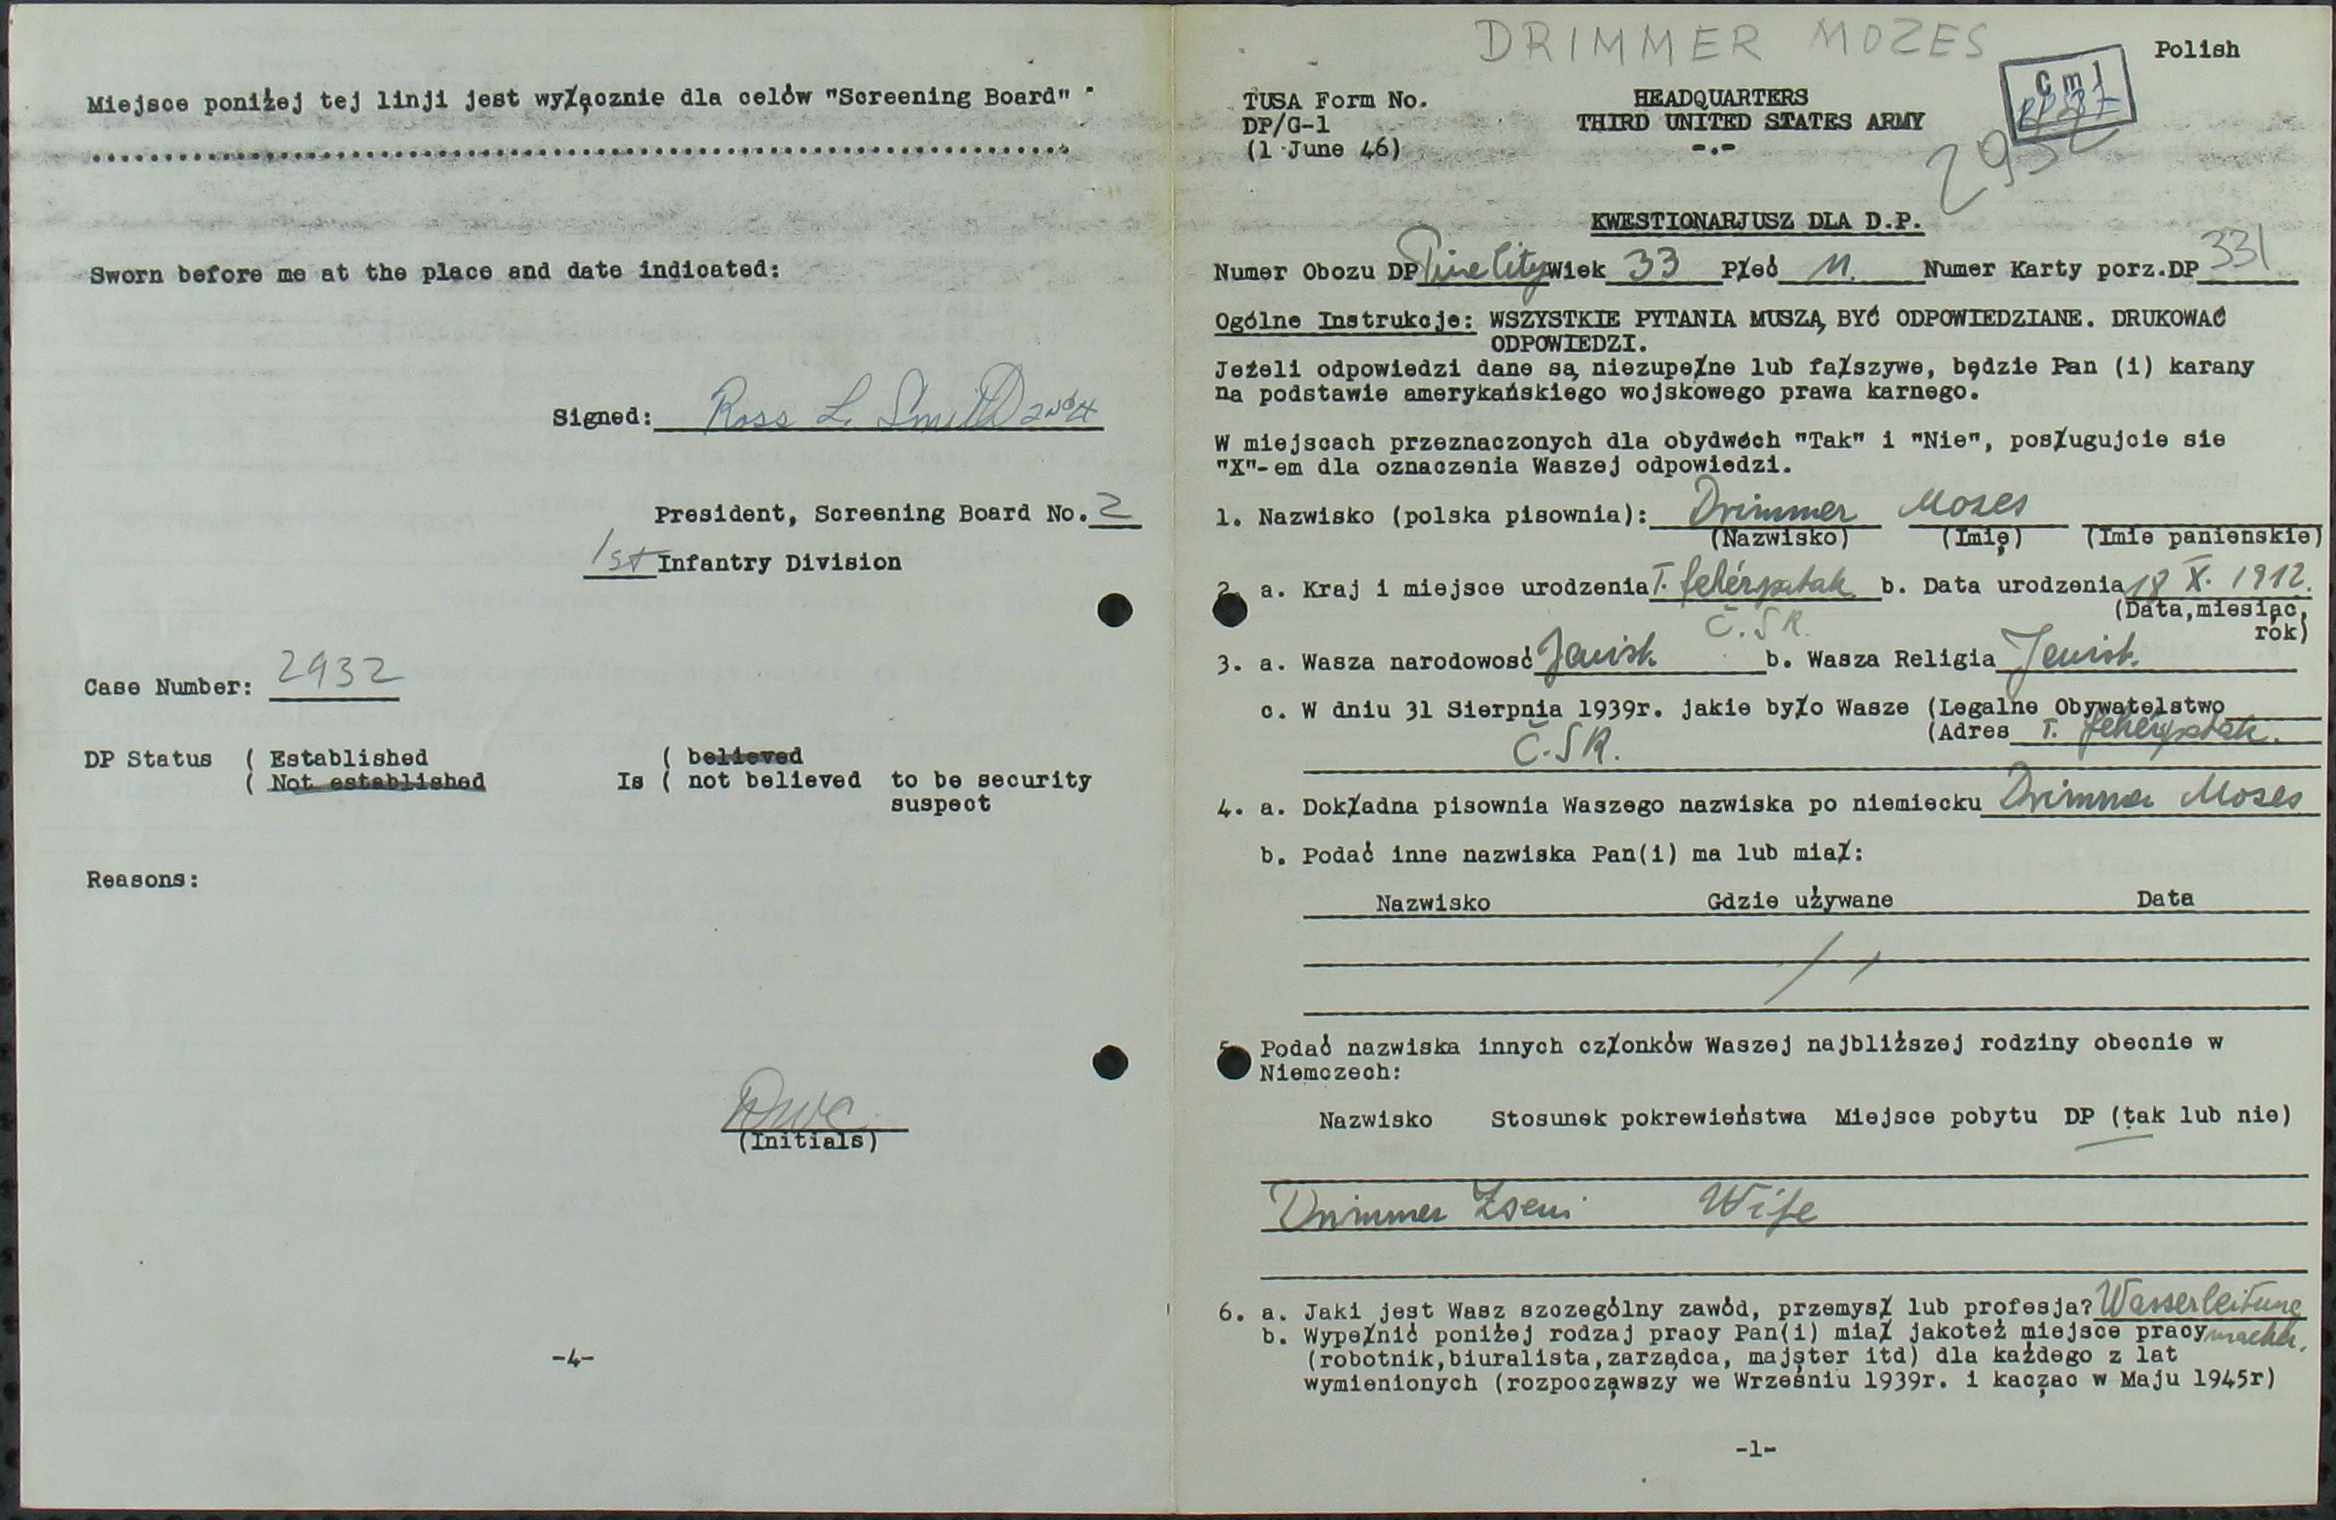 Miejsce poniżej tej linji jest wyłącznie dla celów "Screening Board"
Sworn before me at the place and date indicated:
Signed: Ross L. Smith
President, Screening Board No. 2
1st Infantry Division
Case Number: 2932
DP Status ( Established ( believed
( Not established Is ( not believed to be security
suspect
Reasons:
(Initials)
-4-
DRIMMER MOZES
Polish
TUSA Form No. HEADQUARTERS
DP/G-1 THIRD UNITED STATES ARMY
(1 June 46) -.-
2932
KWESTIONARJUSZ DLA D.P.
Numer Obozu DP Pine City Wiek 33 Płeć M. Numer Karty porz.DP 331
Ogólne Instrukcje: WSZYSTKIE PYTANIA MUSZĄ BYĆ ODPOWIEDZIANE. DRUKOWAĆ
ODPOWIEDZI.
Jeżeli odpowiedzi dane są niezupełne lub fałszywe, będzie Pan (i) karany
na podstawie amerykańskiego wojskowego prawa karnego.
W miejscach przeznaczonych dla obydwóch "Tak" i "Nie", posługujcie sie
"X"-em dla oznaczenia Waszej odpowiedzi.
1. Nazwisko (polska pisownia): Drimmer Moses
(Nazwisko) (Imię) (Imie panienskie)
2. a. Kraj i miejsce urodzenia T. fehérpatak b. Data urodzenia 18 X. 1912.
Č.S.R. (Data,miesiąc,
rok)
3. a. Wasza narodowosć Jewish b. Wasza Religia Jewish.
c. W dniu 31 Sierpnia 1939r. jakie było Wasze (Legalne Obywatelstwo
(Adres T. fehérpatak.
Č.S.R.
4. a. Dokładna pisownia Waszego nazwiska po niemiecku Drimmer Moses
b. Podać inne nazwiska Pan(i) ma lub miał:
Nazwisko Gdzie używane Data
5. Podać nazwiska innych członków Waszej najbliższej rodziny obecnie w
Niemczech:
Nazwisko Stosunek pokrewieństwa Miejsce pobytu DP (tak lub nie)
Drimmer Zseni Wife
6. a. Jaki jest Wasz szczególny zawód, przemysł lub profesja? Wasserleitung
b. Wypełnić poniżej rodzaj pracy Pan(i) miał jakoteż miejsce pracy macher.
(robotnik,biuralista,zarządca, majster itd) dla każdego z lat
wymienionych (rozpocząwszy we Wrześniu 1939r. i kacząc w Maju 1945r)
-1-